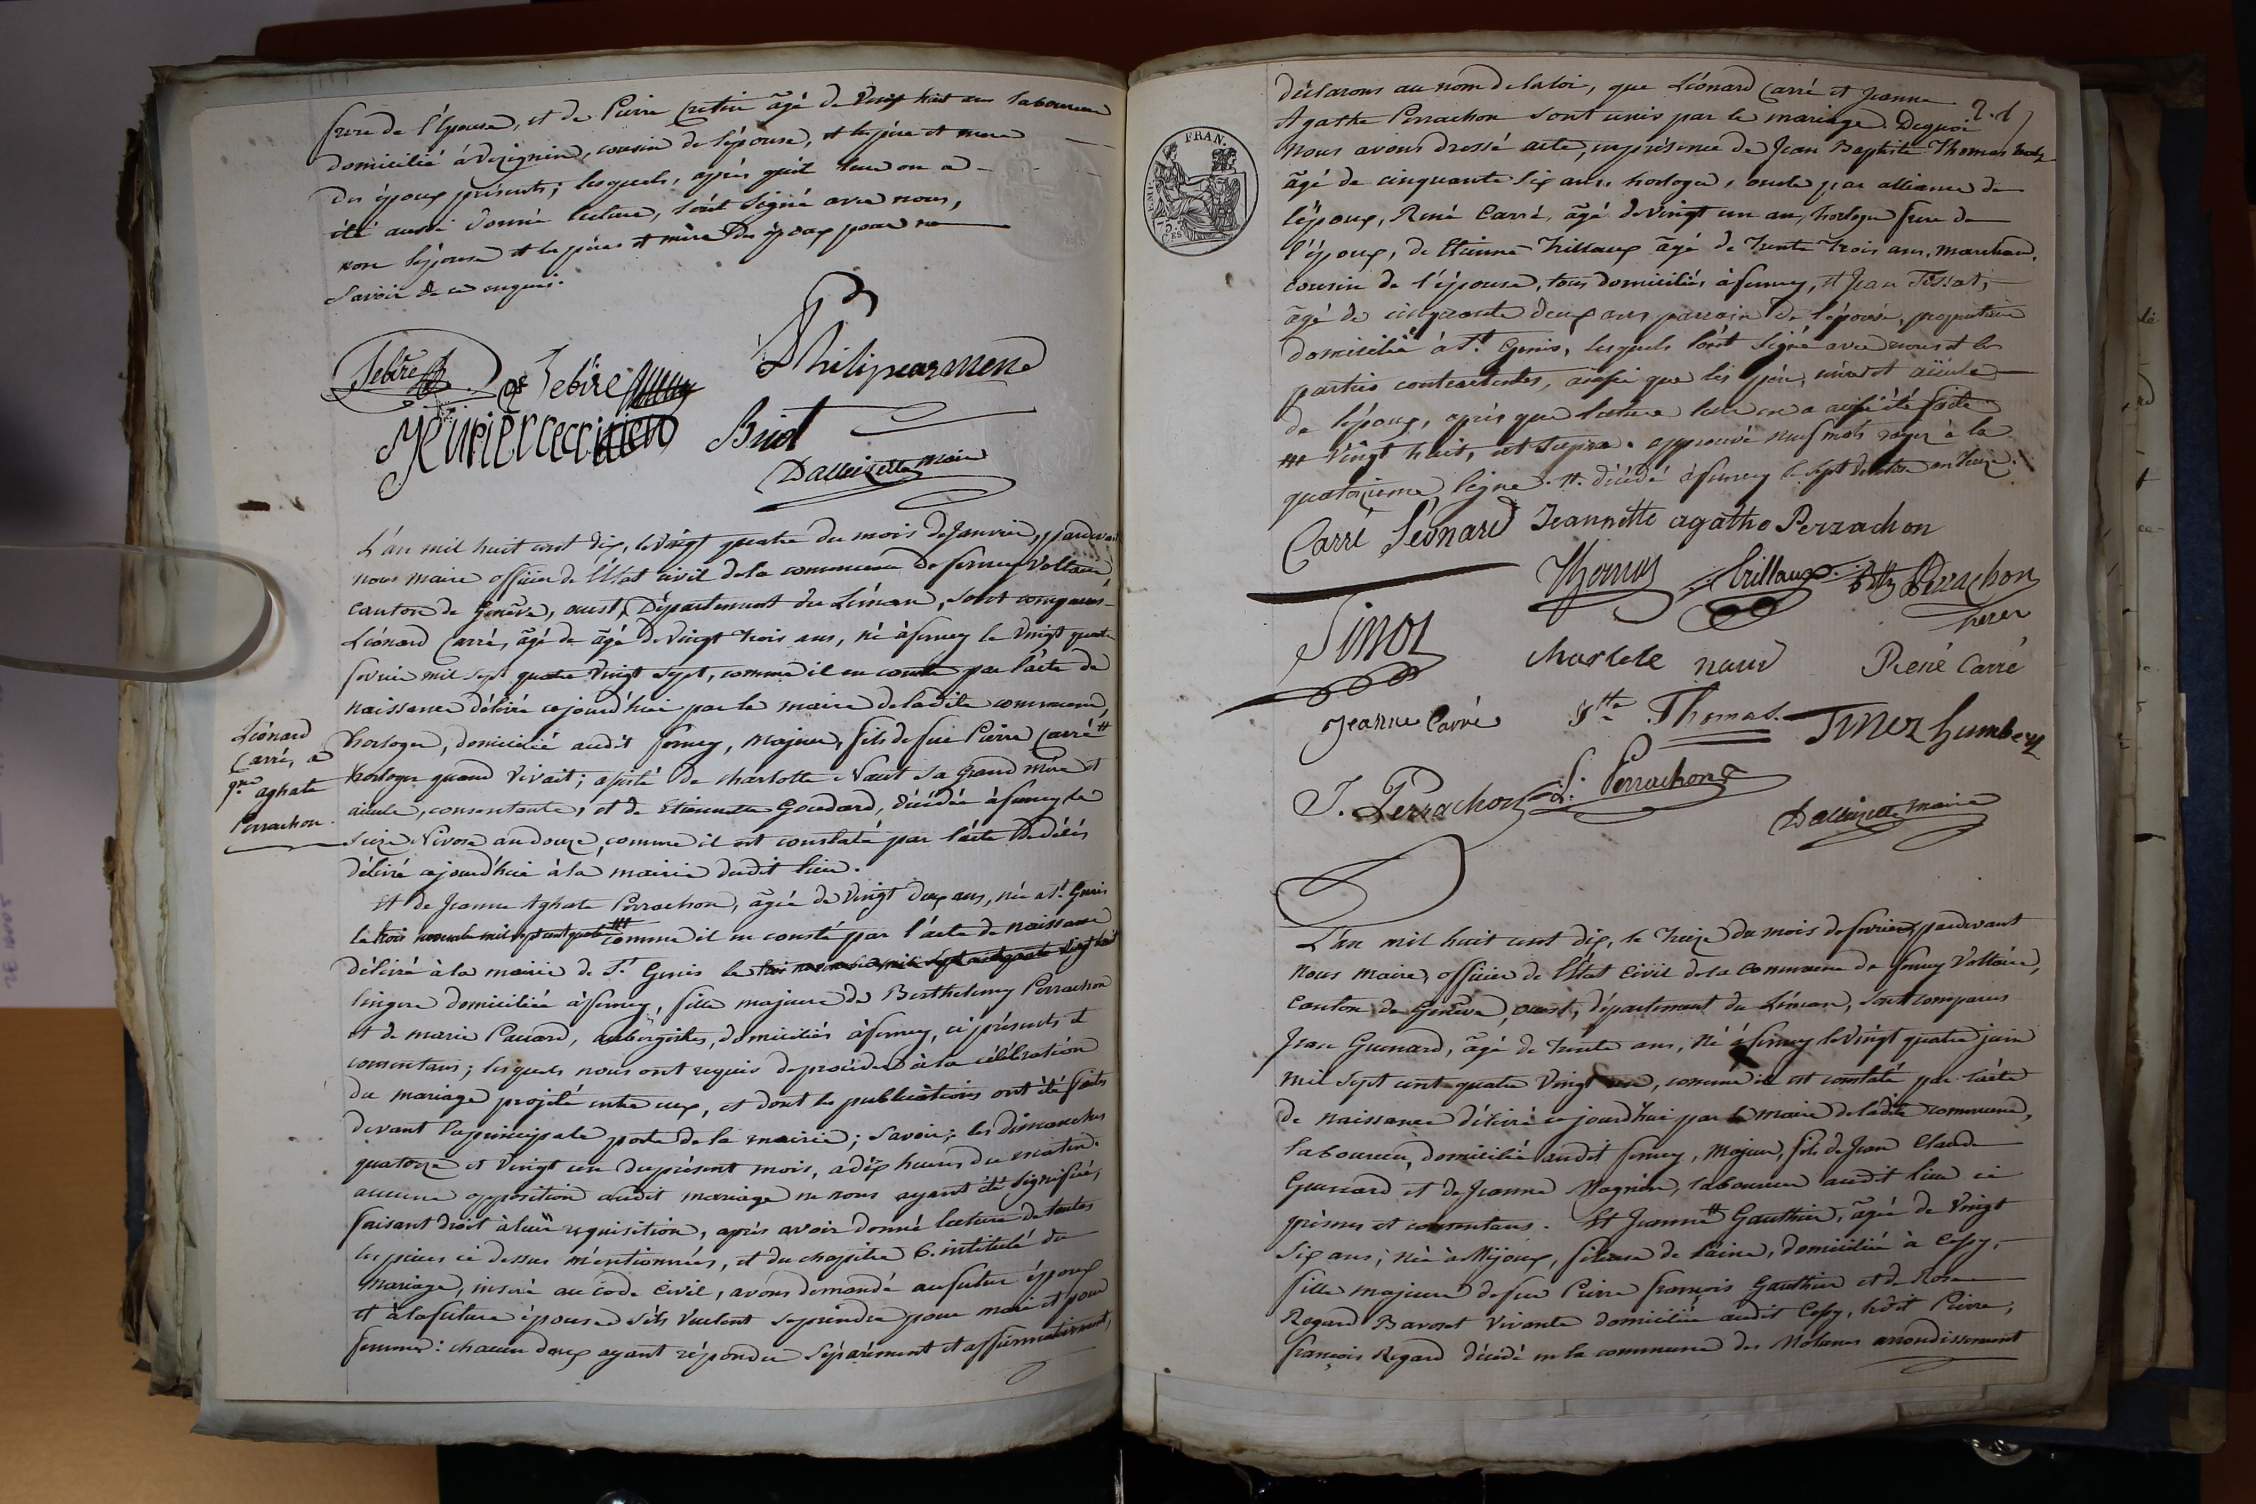 frere de l'Epouse, et de Pierre Cretin âgé de vingt huit ans laboureur
domicilié à Versignin, cousin de l'épouse, et les père et mere
des époux présents; lesquels, après qu'il leur en a
été aussi donné lecture, l'ont signé avec nous,
non l'épouse et les pères et mère des époux pour ne
savoir de ce enquis.
Sebire
Sebire
Philipearmene
Brid
Dallizette maire
L'an mil huit cent dix, le vingt quatre du mois de Janvier, pardevant
nous maire officier de l'Etat civil de la commune de ferney Voltaire
canton de Genève, ouest, Département du Léman, sont comparus
Léonard Carré, âgé de âgé de vingt trois ans, né à ferney le vingt quatre
fevrier mil sept quatre vingt sept, comme il en conste par l'acte de
naissance délivré cejourd'hui par le maire de ladite commune,
Léonard
Carré, à
Jne aghate
Perrachon
horloger, domicilié audit ferney, majeur, fils de feu Pierre Carré #
horloger quand vivait; assisté de charlotte Naut sa grand mère et
aieule, consentante, et de Etiennette Goudard, décédée à ferney le
seize Nivose an douze, comme il est constaté par l'acte de décès
délivré cejourd'hui à la mairie dudit lieu.
Et de Jeanne Aghate Perrachon, âgée de vingt deux ans, née à St. Genis
le trois novembre mil sept cent quatre ### comme il en consté par l'acte de naissance
délivré à la mairie de St. Genis le trois novembre mil sept cent quatre vingt huit
lingere domiciliée à ferney, fille majeure de Berthelemy Perrachon
et de marie Pauard, aubergistes, domiciliés à ferney, ci présents et
consentans; lesquels nous ont requis de procéder à la célébration
du mariage projeté entre eux, et dont les publications ont été faites
devant la principale porte de la mairie; savoir; les dimanches
quatorze et vingt un du présent mois, a dix heures du matin.
aucune opposition audit mariage ne nous ayant été signifiée,
faisant droit à leur requisition, après avoir donné lecture de toutes
les pièces ci dessus mentionnées, et du chapitre 6. intitulé du
Mariage, inséré au Code Civil, avons demandé au futur époux
et à la future épouse s'ils veulent se prendre pour mari et pour
femme: chacun d'eux ayant répondu séparément et affirmativement,
déclarons au nom de la loi, que Léonard Carré et Jeanne
Agathe Perrachon sont unis par le mariage. De quoi
nous avons dressé acte, en présence de Jean Baptiste Thomas
âgé de cinquante six ans, horloger, oncle par alliance de
l'époux, René Carré, âgé de vingt un an, horloger frere de
l'époux, de Etienne Trillaux âgé de trente trois ans, marchand,
cousin de l'épouse, tous domiciliés à ferney, et Jean Tissot,
âgé de cinquante deux ans parrain de l'épouse, propriétaire
domicilié à St. Genis, lesquels l'ont signé avec nous et les
parties contractantes, ainsi que les père, mère et aïeule
de l'époux, après que lecture leur en a aussi été faite
### vingt huit, est supra. approuvé neuf mots rayés à la
quatorzieme ligne. #. décédé à ferney le sept Ventose an treize.
FRAN.
Carré Léonard Jeannette agathe Perrachon
Thomas Trillaux Perrachon
Charlote naud René Carré
Jeanne Carré Thomas Humbert
J. Perrachon L. Perrachon
Dallizette maire
L'an mil huit cent dix, le treize du mois de fevrier, pardevant
nous maire, officier de l'Etat Civil de la commune de ferney Voltaire,
canton de Genève, ouest, département du Léman, sont comparus
Jean Guenard, âgé de trente ans, né à ferney le vingt quatre juin
mil sept cent quatre vingt, comme il est constaté par l'acte
de naissance délivré cejourd'hui par le maire de ladite commune,
laboureur, domicilié audit ferney, majeur, fils de Jean Claude
Guenard et de Jeanne Magnin, laboureur audit lieu ci
présens et consentans. Et Jeanne # Gauthier, âgée de vingt
six ans, née à Mijoux, fileuse de laine, domiciliée à Cessy,
fille majeure de feu Pierre françois Gauthier et de Rose
Regard Bavoset vivante domiciliée audit Cessy, ledit Pierre,
françois Regard décédé en la commune des Molunes arrondissement